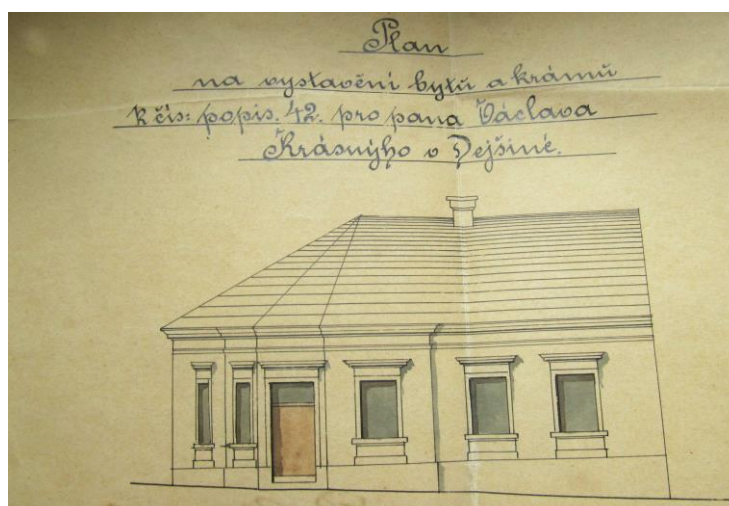 Plan
na vystavění bytů a krámů
k čís: popis. 42. pro pana Václava
Krásnýho v Dejšiné.